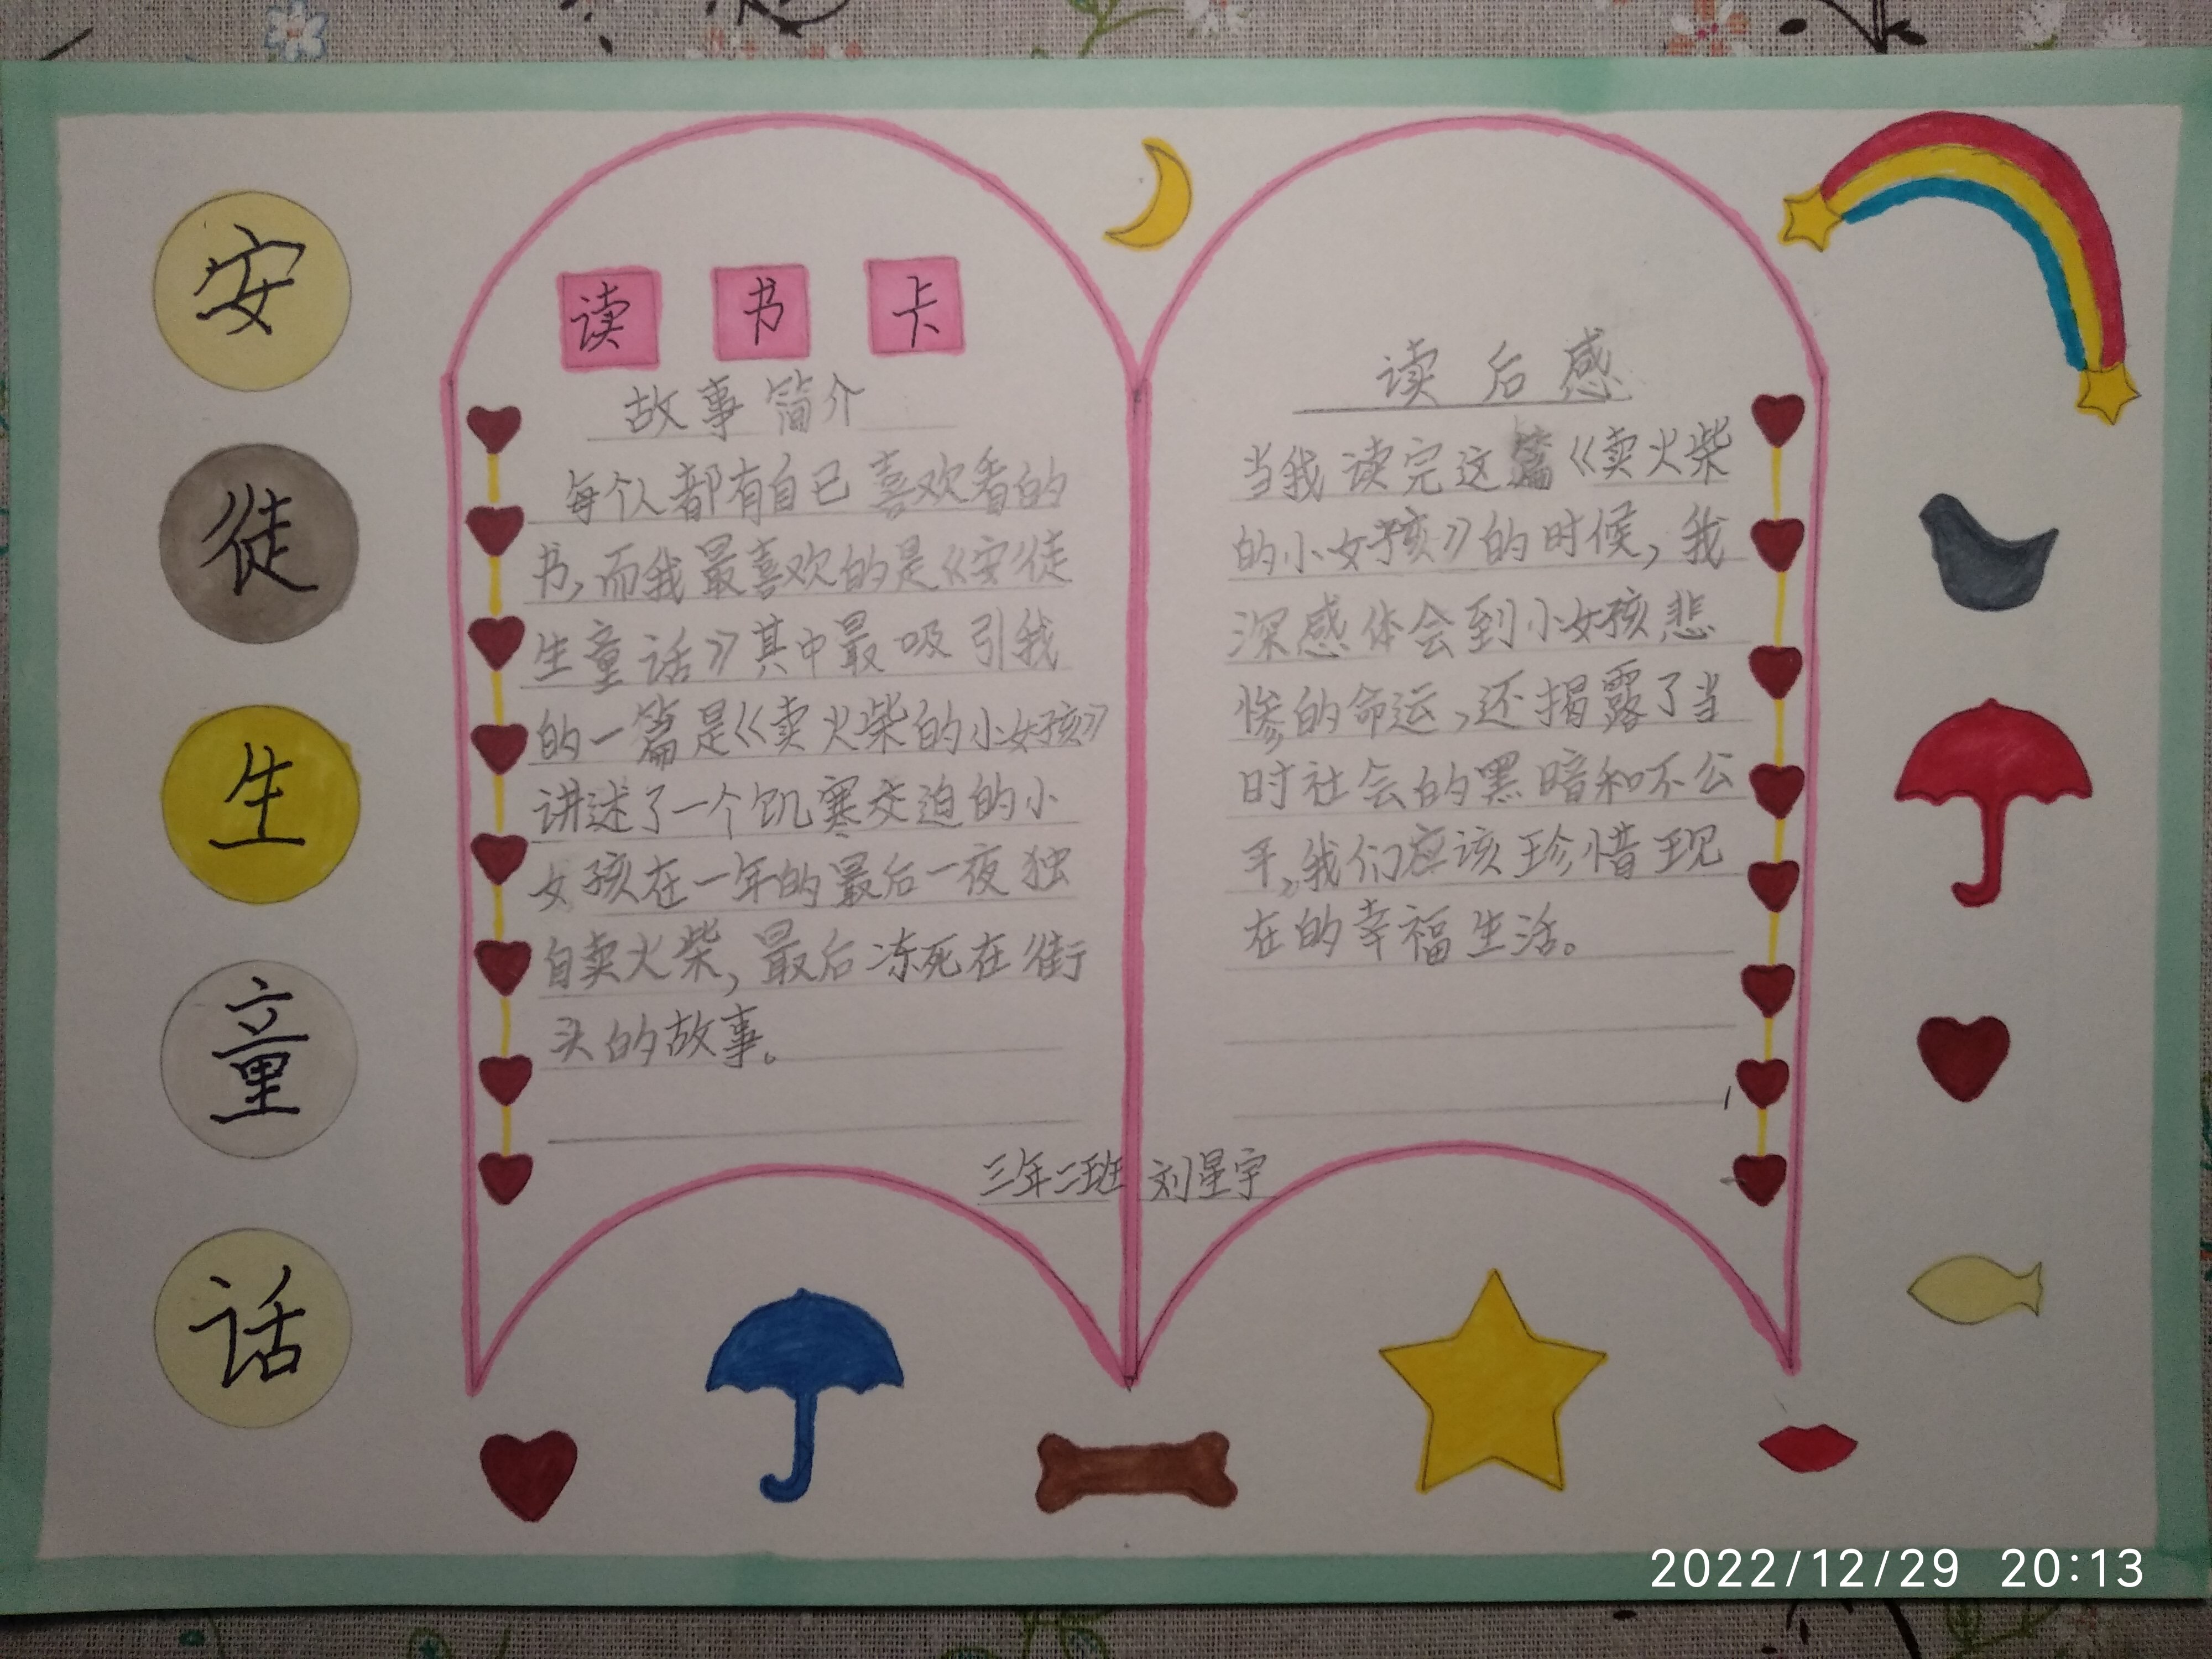 安
徒
生
童
话
读 书 卡
故事简介
每个人都有自己喜欢看的
书,而我最喜欢的是《安徒
生童话》其中最吸引我
的一篇是《卖火柴的小女孩》
讲述了一个饥寒交迫的小
女孩在一年的最后一夜独
自卖火柴,最后冻死在街
头的故事。
读后感
当我读完这篇《卖火柴
的小女孩》的时候,我
深感体会到小女孩悲
惨的命运,还揭露了当
时社会的黑暗和不公
平,我们应该珍惜现
在的幸福生活。
三年二班 刘星宇
2022/12/29 20:13